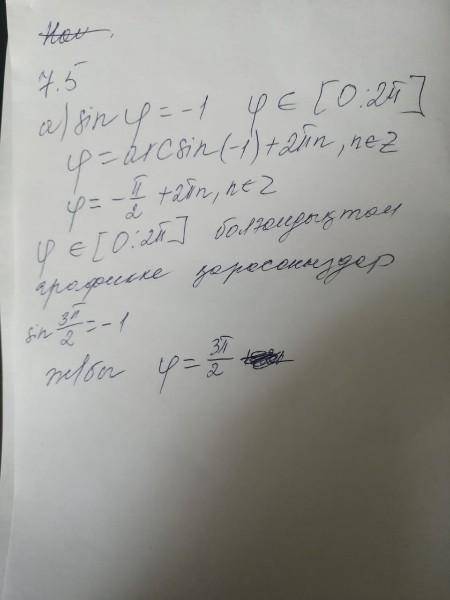 7.5
а) sin φ = -1 φ ∈ [0:2π]
φ = arcsin(-1) + 2πn, n∈Z
φ = -π/2 + 2πn, n∈Z
φ ∈ [0:2π] болғандықтан
графикке қарасаңыздар
sin 3π/2 = -1
Ж/бы φ = 3π/2